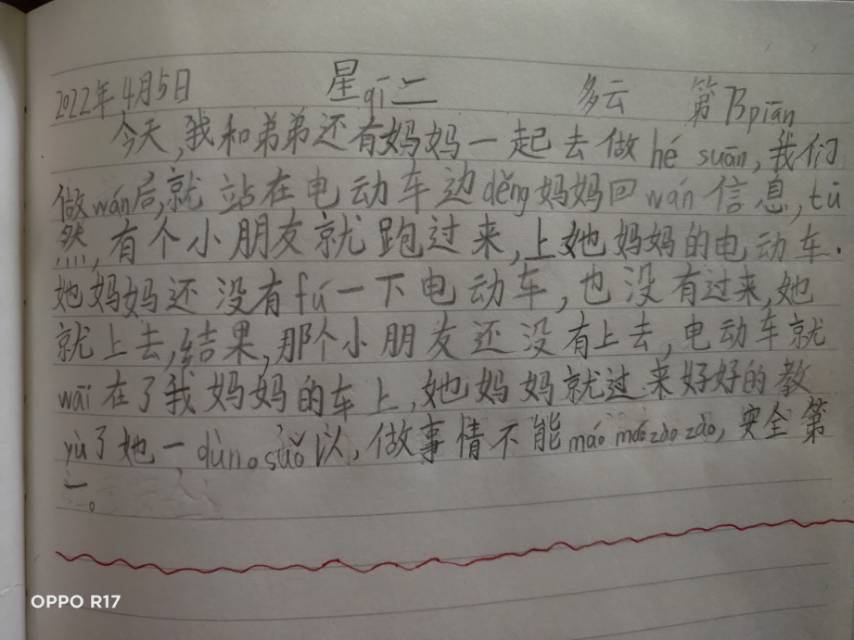 2022年4月5日 星qī二 多云 第73piān
今天,我和弟弟还有妈妈一起去做hé suān,我们
做wán后,就站在电动车边děng妈妈回wán信息,tū
然,有个小朋友就跑过来,上她妈妈的电动车.
她妈妈还没有fú一下电动车,也没有过来,她
就上去,结果,那个小朋友还没有上去,电动车就
wāi在了我妈妈的车上,她妈妈就过来好好的教
yù了她一dùn。suǒ以,做事情不能máo máo zào zào,安全第
一。
OPPO R17